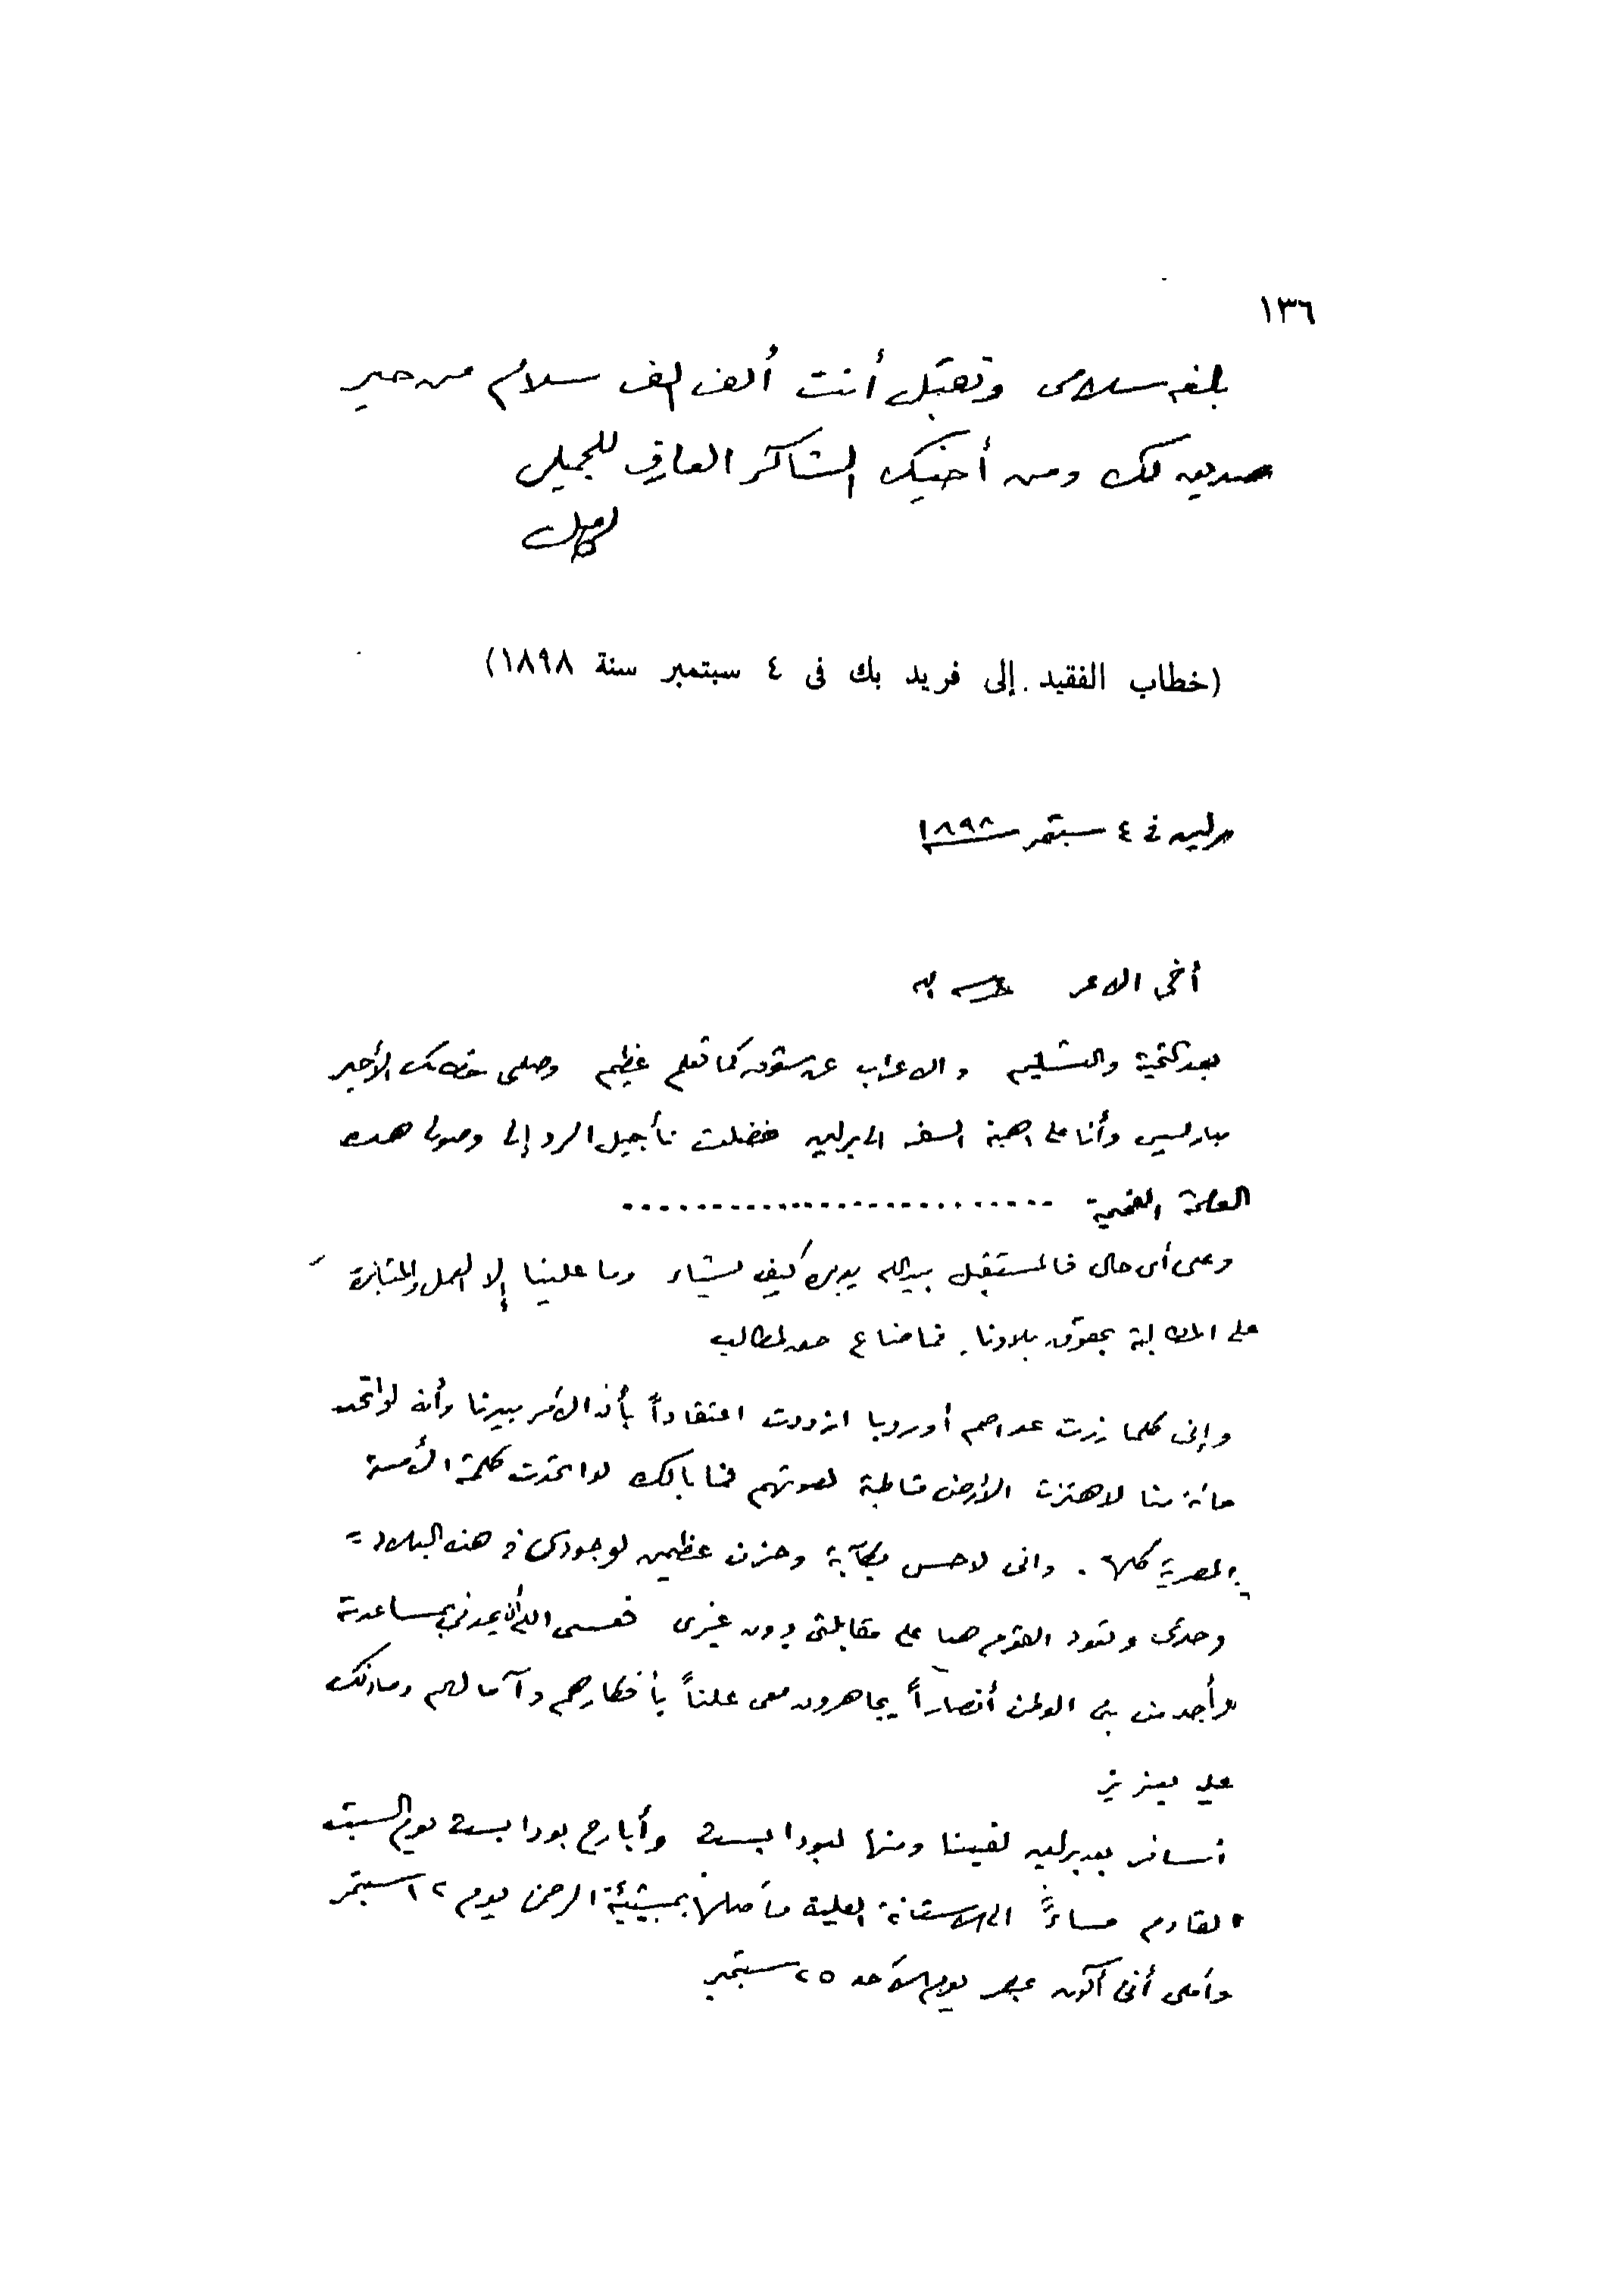 ١٣٦
بلغه سلامى وتقبل أنت ألف ألف سلام من خير
صديق لك ومن أخيك الشاكر العارف للجميل
(خطاب الفقيد إلى فريد بك فى ٤ سبتمبر سنة ١٨٩٨)
برلين فى ٤ سبتمبر ١٨٩٨
أخى الاعز
بعد التحية والتسليم والاعراب عن شوق كما تعلم عظيم وصلنى خطابك الأخير
بباريس وأنا على اهبة السفر الى برلين ففضلت تأجيل الرد إلى وصولى هذه
العاصمة الفخيمة ..........................
وعلى أى حال فالمستقبل بيد الله يديره كيف يشاء وما علينا إلا العمل والمثابرة
على المطالبة بحقوق بلادنا فما ضاع حق لمطالب
وإنى كلما زرت عواصم أوروبا ازددت اعتقاداً بأن الأمر بيدنا وأنه لو اتحد
مائة منا لاهتزت الأرض قاطبة لصوتهم فما بالك لو اتحدت كلمة الأمة
المصرية كلها . وانى لاحس بكآبة وحزن عظيمين لوجودى فى هذه البلاد
وحدى وتعود القوم هنا على مقابلتى دون غيرى فعسى الله أن يمدنى بمساعدته
وأجد من بنى الوطن أنصاراً يجاهرون معى علناً بأفكارهم وآمالهم وما ذلك
عليه بعزيز
أسافر بعد برلين لفينا ومنها لبودابست وأبارح بودابست يوم السبت
القادم مساءً الى الاستانة العلية فأصلها بمشيئة الرحمن يوم ١٢ سبتمبر
وأملى أنى أكون بمصر يوم الأحد ٢٥ سبتمبر